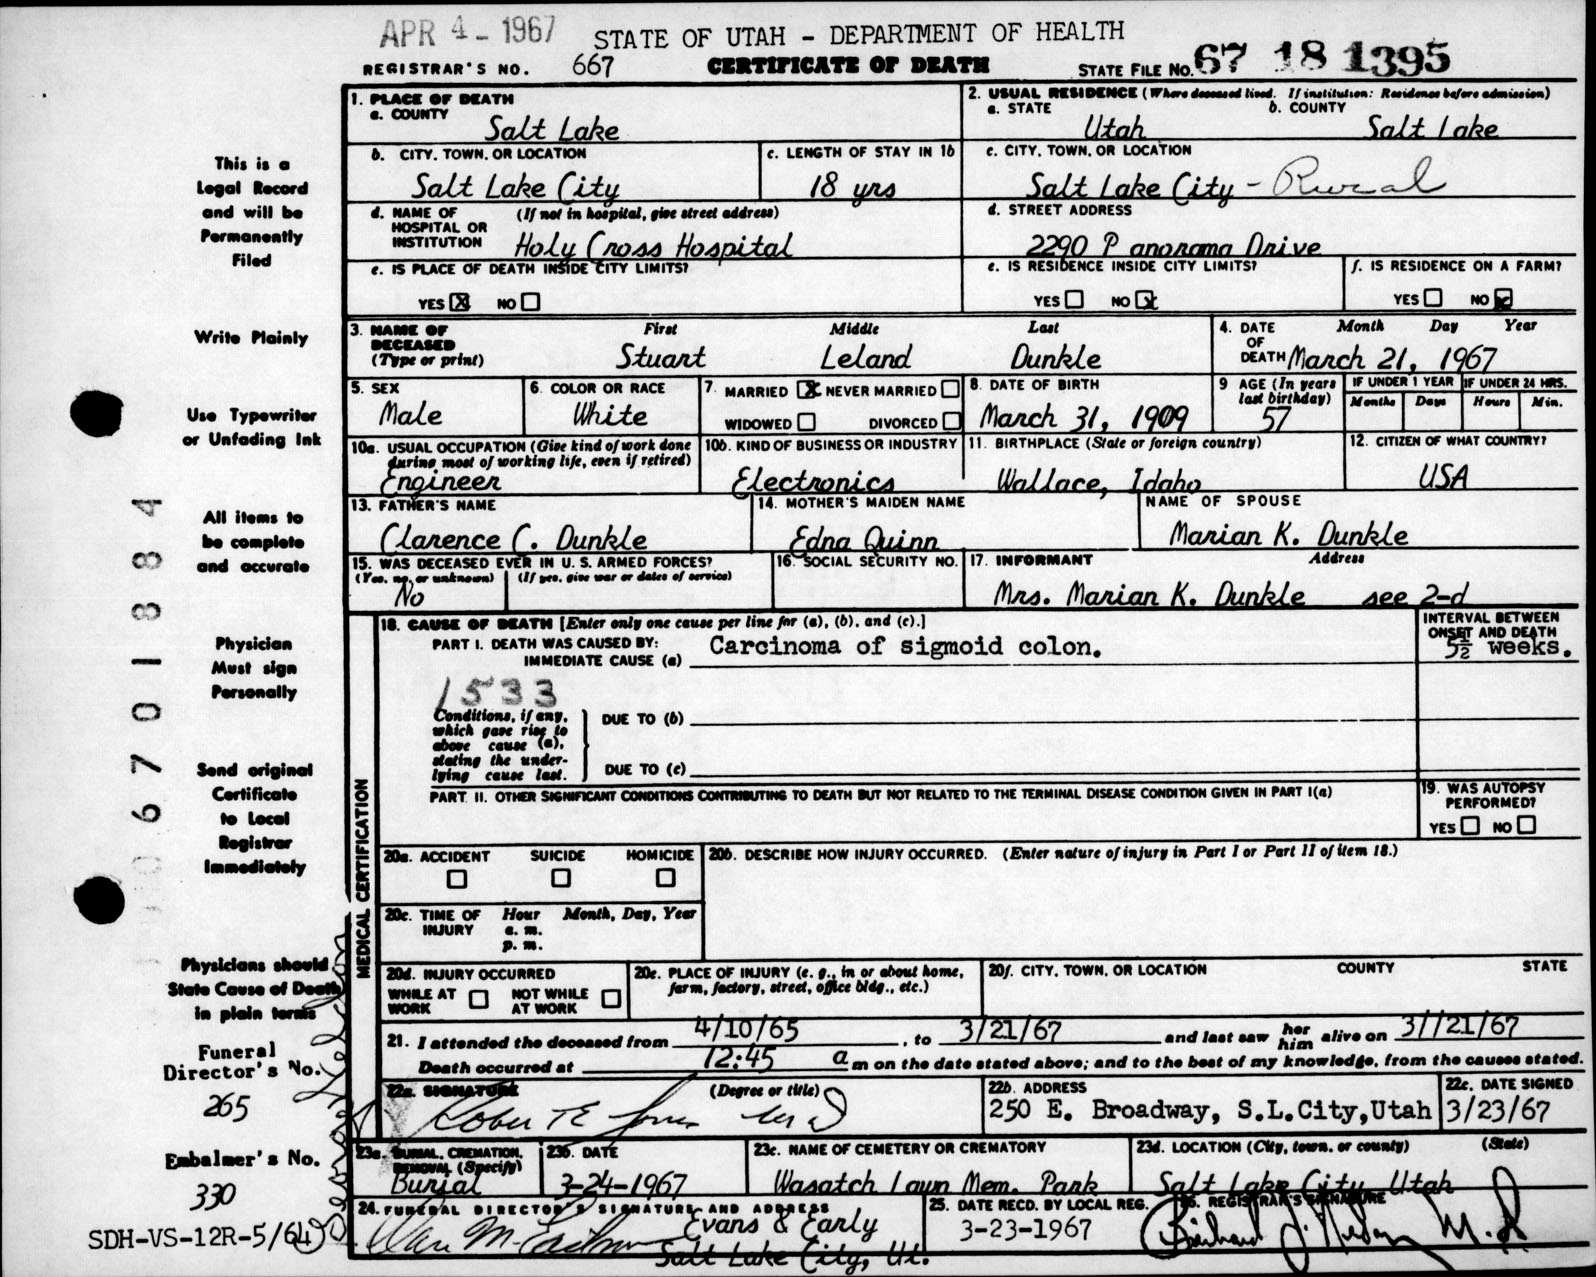 APR 4 - 1967
STATE OF UTAH - DEPARTMENT OF HEALTH
REGISTRAR'S NO. 667 CERTIFICATE OF DEATH STATE FILE NO. 67 18 1395
1. PLACE OF DEATH
a. COUNTY
Salt Lake
2. USUAL RESIDENCE (Where deceased lived. If institution: Residence before admission)
a. STATE b. COUNTY
Utah Salt Lake
b. CITY, TOWN, OR LOCATION
Salt Lake City
c. LENGTH OF STAY IN 1b
18 yrs
c. CITY, TOWN, OR LOCATION
Salt Lake City - Rural
d. NAME OF HOSPITAL OR INSTITUTION (If not in hospital, give street address)
Holy Cross Hospital
d. STREET ADDRESS
2290 Panorama Drive
e. IS PLACE OF DEATH INSIDE CITY LIMITS?
YES X NO
e. IS RESIDENCE INSIDE CITY LIMITS?
YES NO X
f. IS RESIDENCE ON A FARM?
YES NO X
3. NAME OF DECEASED (Type or print)
First Middle Last
Stuart Leland Dunkle
4. DATE OF DEATH Month Day Year
March 21, 1967
5. SEX
Male
6. COLOR OR RACE
White
7. MARRIED X NEVER MARRIED
WIDOWED DIVORCED
8. DATE OF BIRTH
March 31, 1909
9 AGE (In years last birthday)
57
IF UNDER 1 YEAR
Months Days
IF UNDER 24 HRS.
Hours Min.
10a. USUAL OCCUPATION (Give kind of work done during most of working life, even if retired)
Engineer
10b. KIND OF BUSINESS OR INDUSTRY
Electronics
11. BIRTHPLACE (State or foreign country)
Wallace, Idaho
12. CITIZEN OF WHAT COUNTRY?
USA
13. FATHER'S NAME
Clarence C. Dunkle
14. MOTHER'S MAIDEN NAME
Edna Quinn
NAME OF SPOUSE
Marian K. Dunkle
15. WAS DECEASED EVER IN U. S. ARMED FORCES?
(Yes, no, or unknown) (If yes, give war or dates of service)
No
16. SOCIAL SECURITY NO.
17. INFORMANT Address
Mrs. Marian K. Dunkle see 2-d
MEDICAL CERTIFICATION
18. CAUSE OF DEATH [Enter only one cause per line for (a), (b), and (c).]
PART I. DEATH WAS CAUSED BY:
IMMEDIATE CAUSE (a) Carcinoma of sigmoid colon.
INTERVAL BETWEEN ONSET AND DEATH
5½ weeks.
1533
Conditions, if any, which gave rise to above cause (a), stating the underlying cause last.
DUE TO (b)
DUE TO (c)
PART II. OTHER SIGNIFICANT CONDITIONS CONTRIBUTING TO DEATH BUT NOT RELATED TO THE TERMINAL DISEASE CONDITION GIVEN IN PART I(a)
19. WAS AUTOPSY PERFORMED?
YES NO
20a. ACCIDENT SUICIDE HOMICIDE
20b. DESCRIBE HOW INJURY OCCURRED. (Enter nature of injury in Part I or Part II of item 18.)
20c. TIME OF INJURY Hour Month, Day, Year
a. m.
p. m.
20d. INJURY OCCURRED
WHILE AT WORK NOT WHILE AT WORK
20e. PLACE OF INJURY (e. g., in or about home, farm, factory, street, office bldg., etc.)
20f. CITY, TOWN, OR LOCATION COUNTY STATE
21. I attended the deceased from 4/10/65, to 3/21/67 and last saw her him alive on 3/21/67
Death occurred at 12:45 a m on the date stated above; and to the best of my knowledge, from the causes stated.
22a. SIGNATURE (Degree or title)
22b. ADDRESS
250 E. Broadway, S.L.City, Utah
22c. DATE SIGNED
3/23/67
23a. BURIAL, CREMATION, REMOVAL (Specify)
Burial
23b. DATE
3-24-1967
23c. NAME OF CEMETERY OR CREMATORY
Wasatch Lawn Mem. Park
23d. LOCATION (City, town, or county) (State)
Salt Lake City Utah
24. FUNERAL DIRECTOR'S SIGNATURE AND ADDRESS
Evans & Early
Salt Lake City, Ut.
25. DATE RECD. BY LOCAL REG.
3-23-1967
26. REGISTRAR'S SIGNATURE
This is a
Legal Record
and will be
Permanently
Filed
Write Plainly
Use Typewriter
or Unfading Ink
All items to
be complete
and accurate
Physician
Must sign
Personally
Send original
Certificate
to Local
Registrar
Immediately
Physicians should
State Cause of Death
in plain terms
Funeral
Director's No.
265
Embalmer's No.
330
SDH-VS-12R-5/64
06701884